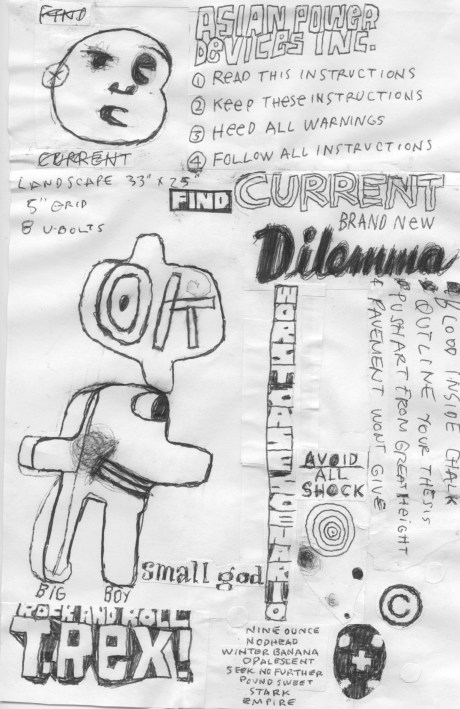 FIND
ASIAN POWER
DEVICES INC.
1 READ THIS INSTRUCTIONS
2 KEEP THESE INSTRUCTIONS
3 HEED ALL WARNINGS
4 FOLLOW ALL INSTRUCTIONS
CURRENT
LANDSCAPE 33" x 25"
5" GRID
8 U-BOLTS
FIND CURRENT
BRAND NEW
Dilemma
BLOOD INSIDE CHALK
OUTLINE YOUR THESIS
PUSH ART FROM GREAT HEIGHT
PAVEMENT WONT GIVE
AVOID
ALL
SHOCK
small god
BIG BOY
ROCK AND ROLL
T.REX!
©
NINE OUNCE
NODHEAD
WINTER BANANA
OPALESCENT
SEEK NO FURTHER
POUND SWEET
STARK
EMPIRE